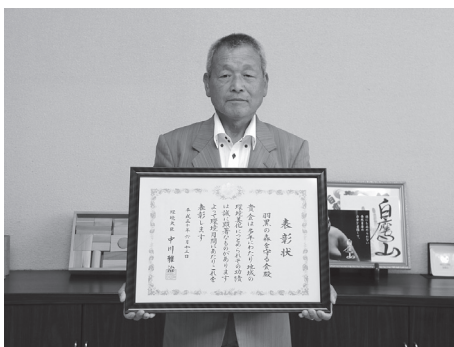 表彰状
羽黒の森を守る会殿
貴会は多年にわたり地域の
環境美化につとめられその功績
は誠に顕著なものがあります
よって環境月間にあたりこれを
表彰します
平成三十年六月十三日
環境大臣 中川雅治
白鷹山